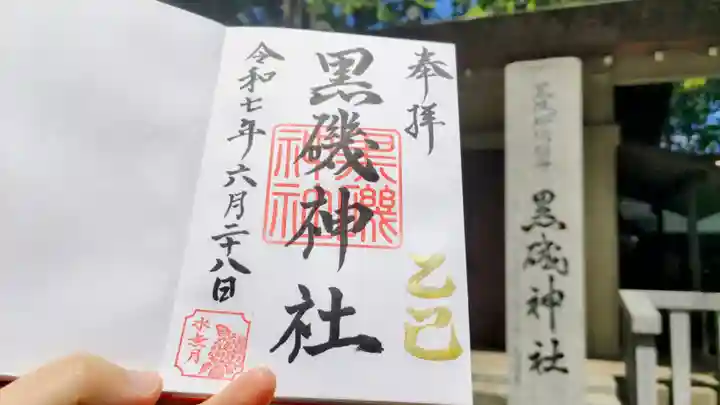 奉拝
乙巳
黒磯神社
黒磯神社
令和七年六月二十八日
水無月
黒磯神社